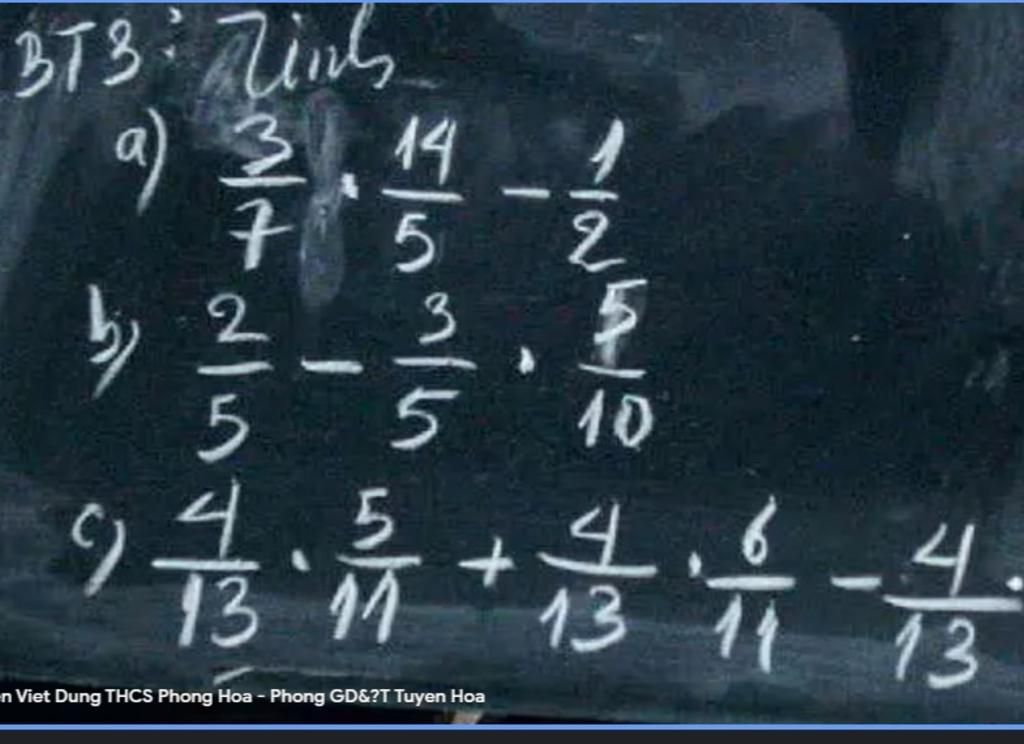 BT3: Tính
a) 3/7 . 14/5 - 1/2
b) 2/5 - 3/5 . 5/10
c) 4/13 . 5/11 + 4/13 . 6/11 - 4/13 .
n Viet Dung THCS Phong Hoa - Phong GD&?T Tuyen Hoa